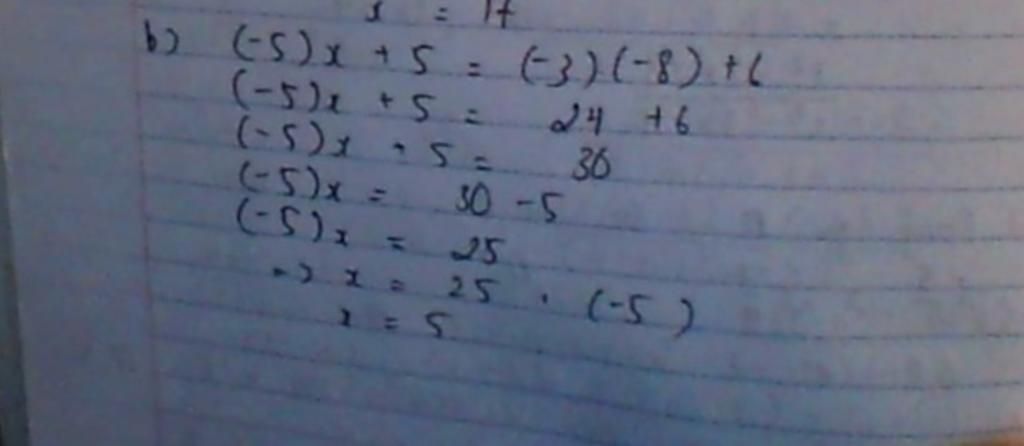 x = 17
b) (-5)x + 5 = (-3)(-8) + 6
(-5)x + 5 = 24 + 6
(-5)x + 5 = 30
(-5)x = 30 - 5
(-5)x = 25
=> x = 25 : (-5)
x = 5